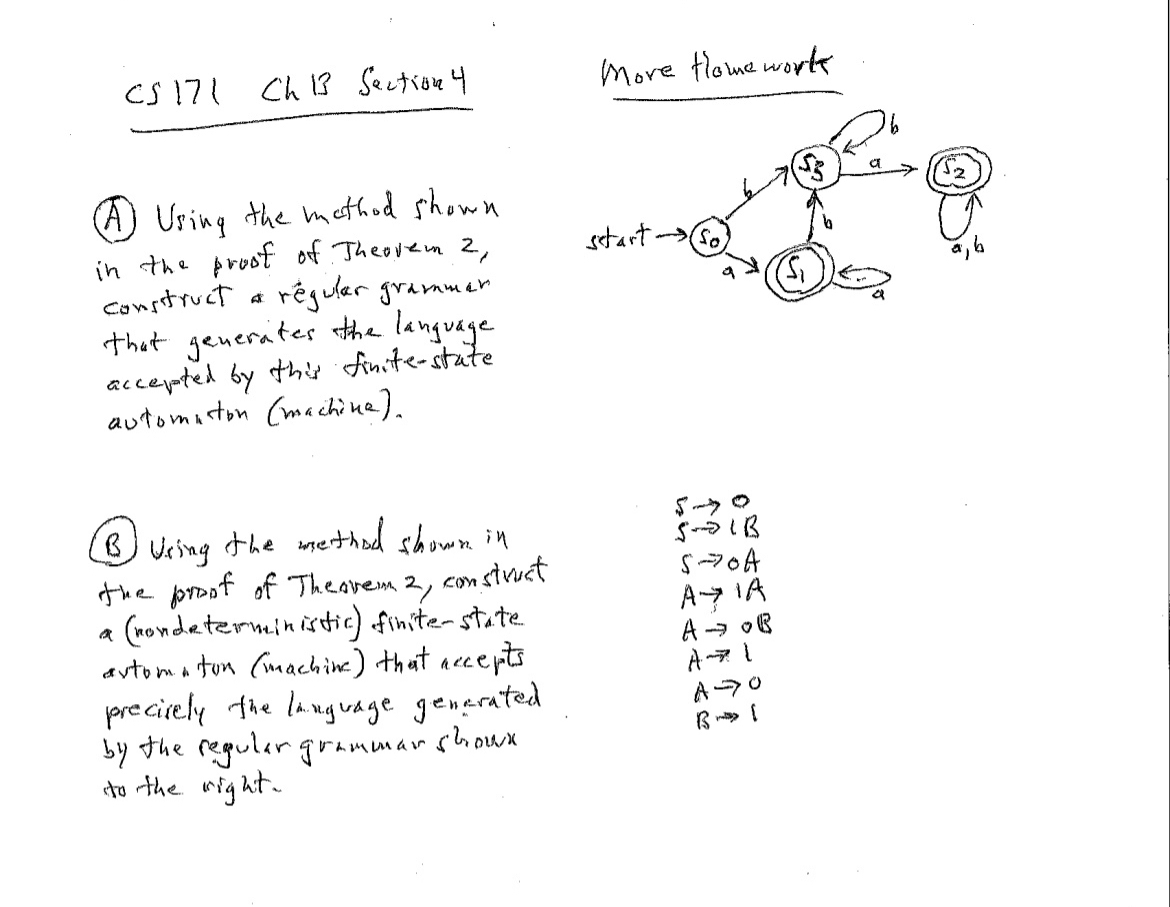 CS 171 Ch 13 Section 4
More Homework
b
S3
a
S2
b
start → S0
b
a, b
a
S1
a
(A) Using the method shown
in the proof of Theorem 2,
construct a regular grammar
that generates the language
accepted by this finite-state
automaton (machine).
(B) Using the method shown in
the proof of Theorem 2, construct
a (nondeterministic) finite-state
automaton (machine) that accepts
precisely the language generated
by the regular grammar shown
to the right.
S → 0
S → 1B
S → 0A
A → 1A
A → 0B
A → 1
A → 0
B → 1